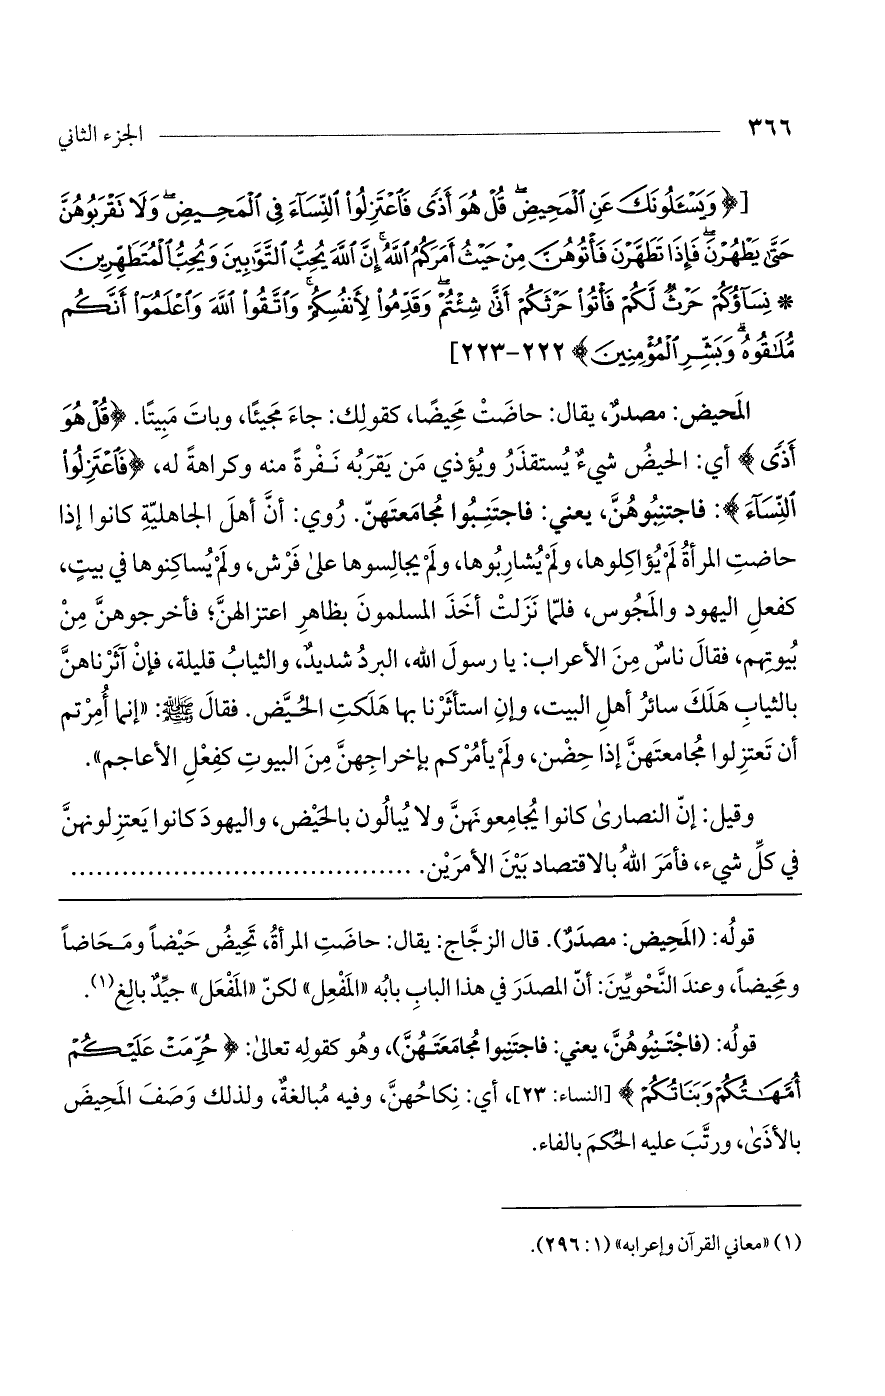 ٣٦٦ الجزء الثاني
[﴿ وَيَسْـَٔلُونَكَ عَنِ ٱلْمَحِيضِ ۖ قُلْ هُوَ أَذًى فَٱعْتَزِلُوا۟ ٱلنِّسَآءَ فِى ٱلْمَحِيضِ ۖ وَلَا نَقْرَبُوهُنَّ
حَتَّىٰ يَطْهُرْنَ ۖ فَإِذَا تَطَهَّرْنَ فَأْتُوهُنَّ مِنْ حَيْثُ أَمَرَكُمُ ٱللَّهُ ۚ إِنَّ ٱللَّهَ يُحِبُّ ٱلتَّوَّٰبِينَ وَيُحِبُّ ٱلْمُتَطَهِّرِينَ
* نِسَآؤُكُمْ حَرْثٌ لَّكُمْ فَأْتُوا۟ حَرْثَكُمْ أَنَّىٰ شِئْتُمْ ۖ وَقَدِّمُوا۟ لِأَنفُسِكُمْ ۚ وَٱتَّقُوا۟ ٱللَّهَ وَٱعْلَمُوٓا۟ أَنَّكُم
مُّلَـٰقُوهُ ۗ وَبَشِّرِ ٱلْمُؤْمِنِينَ ﴾ ٢٢٢-٢٢٣]
المَحيض: مصدرٌ، يقال: حاضَتْ مَحِيضًا، كقولِك: جاءَ مَجيئًا، وباتَ مَبِيتًا. ﴿قُلْ هُوَ
أَذًى ﴾ أي: الحيضُ شيءٌ يُستقذَرُ ويُؤذي مَن يَقرَبُه نَفْرةً منه وكراهةً له، ﴿فَٱعْتَزِلُوا۟
ٱلنِّسَآءَ ﴾: فاجتنِبُوهُنَّ، يعني: فاجتَنِبُوا مُجامَعتَهنّ. رُوي: أنَّ أهلَ الجاهليّةِ كانوا إذا
حاضتِ المرأةُ لَمْ يُؤاكِلوها، ولَمْ يُشارِبُوها، ولَمْ يجالِسوها علىٰ فَرْش، ولَمْ يُساكِنوها في بيتٍ،
كفعلِ اليهود والمَجُوس، فلمّا نَزَلتْ أخَذَ المسلمونَ بظاهرِ اعتزالهنَّ؛ فأخرجوهنَّ مِنْ
بُيوتِهم، فقالَ ناسٌ مِنَ الأعراب: يا رسولَ الله، البردُ شديدٌ، والثيابُ قليلة، فإنْ آثَرْناهنَّ
بالثيابِ هَلَكَ سائرُ أهلِ البيت، وإنِ استأثَرْنا بها هَلَكتِ الحُيَّض. فقالَ ﷺ: «إنما أُمِرْتم
أن تَعتزِلوا مُجامعتَهنَّ إذا حِضْن، ولَمْ يأمُرْكم بإخراجِهنَّ مِنَ البيوتِ كفِعْلِ الأعاجم».
وقيل: إنّ النصارىٰ كانوا يُجامِعونَهنَّ ولا يُبالُون بالحَيْض، واليهودَ كانوا يَعتزِلونهنَّ
في كلِّ شيء، فأمَرَ اللهُ بالاقتصاد بَيْنَ الأمرَيْن. ........................................
قولُه: (المَحِيض: مصدَرٌ). قال الزجَّاج: يقال: حاضَتِ المرأةُ، تَحِيضُ حَيْضاً ومَحَاضاً
ومَحِيضاً، وعندَ النَّحْويِّينَ: أنّ المصدَرَ في هذا البابِ بابُه «المَفْعِل» لكنّ «المَفْعَل» جيِّدٌ بالِغ(١).
قولُه: (فاجْتَنِبُوهُنَّ، يعني: فاجتَنِبوا مُجامَعَتَهُنَّ)، وهُو كقولِه تعالىٰ: ﴿ حُرِّمَتْ عَلَيْكُمْ
أُمَّهَـٰتُكُمْ وَبَنَاتُكُمْ ﴾ [النساء: ٢٣]، أي: نِكاحُهنَّ، وفيه مُبالغةٌ، ولذلك وَصَفَ المَحِيضَ
بالأذَىٰ، ورتَّبَ عليه الحُكمَ بالفاء.
(١) «معاني القرآن وإعرابه» (١: ٢٩٦).